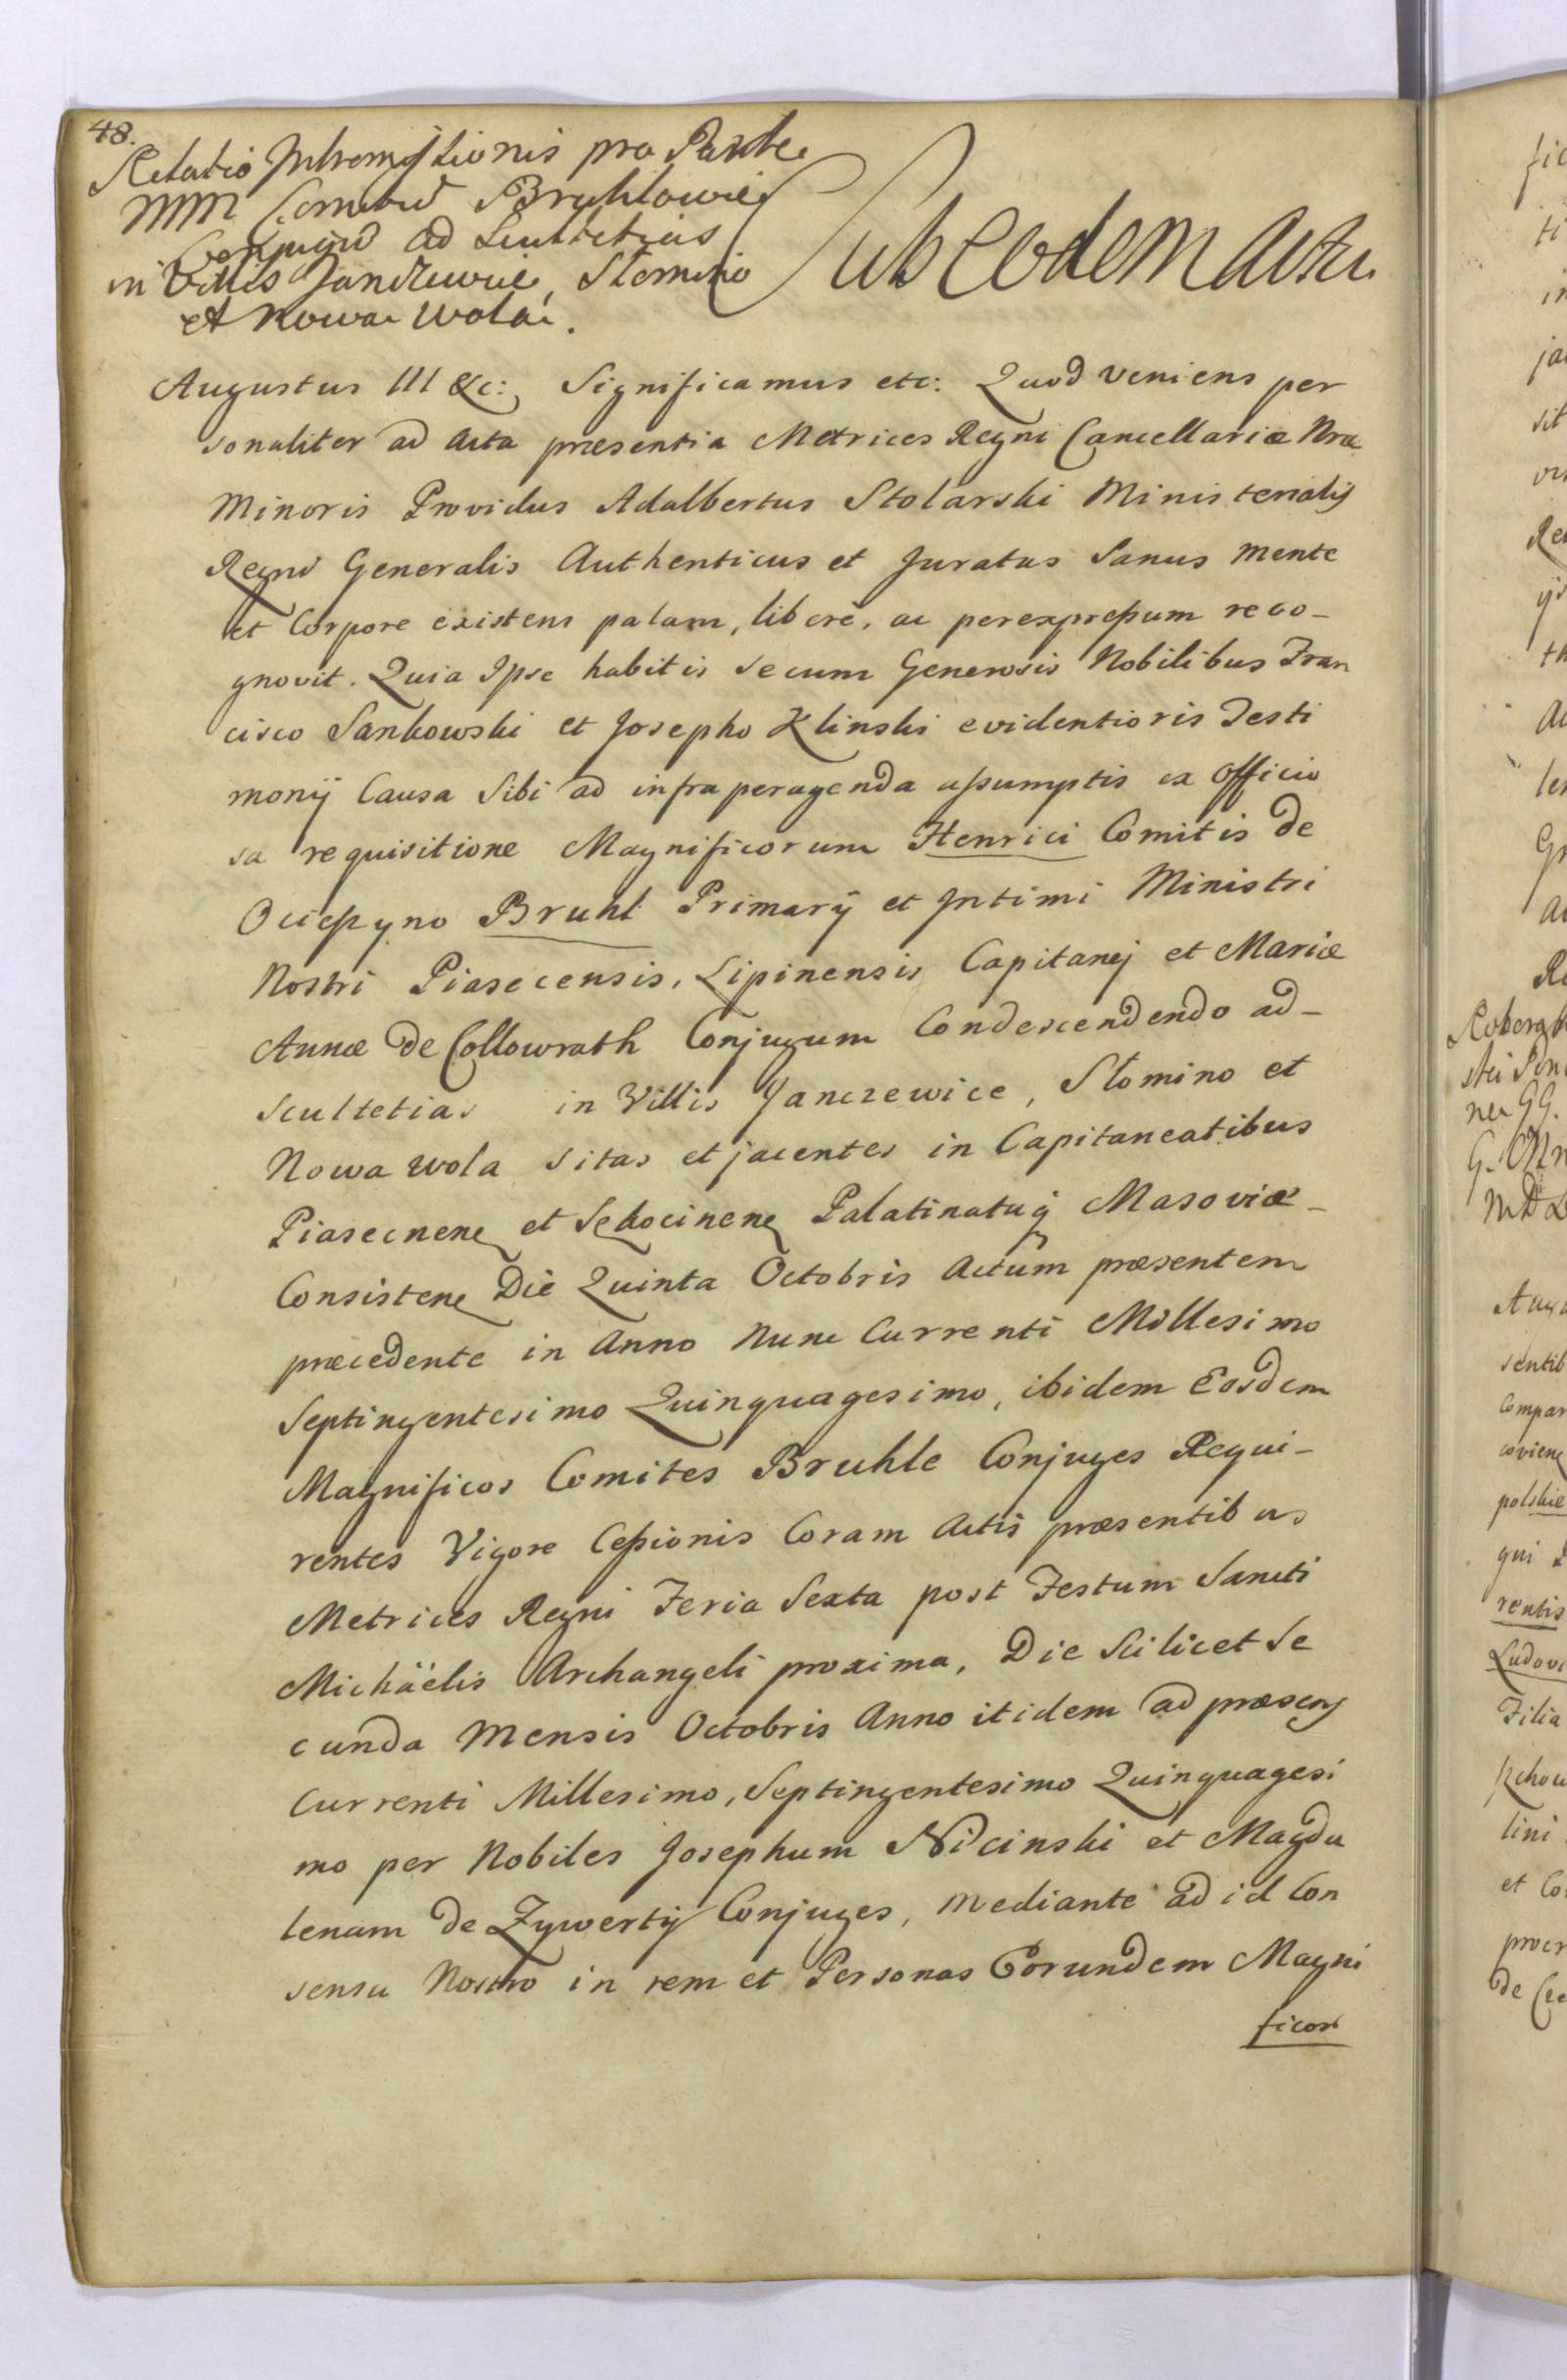 48.
Relatio Intromissionis pro Parte
MM Comitū Bruhlowie
Conjugū ad Scultetias
in Villis Janczewice, Słomino
et Nowa Wola.
Sub eodem actu
Augustus III &c: Significamus etc: Quod veniens per
sonaliter ad Acta præsentia Metrices Regni Cancellariæ Nræ
Minoris Providus Adalbertus Stolarski Ministerialis
Regni Generalis Authenticus et Juratus Sanus mente
et Corpore existens palam, liberè, ac perexpressum reco-
gnovit. Quia Ipse habitis secum Generosis Nobilibus Fran
cisco Sankowski et Josepho Klinski evidentioris Testi
monÿ Causa Sibi ad infra peragenda assumptis ex Officio
sa requisitione Magnificorum Henrici Comitis de
Ocieszyno Bruhl Primarÿ et Intimi Ministri
Nostri Piasecensis, Lipinensis Capitanej et Mariæ
Annæ de Collowrath Conjugum Condescendendo ad-
Scultetias in Villis Janczewice, Słomino et
Nowa Wola sitas et jacentes in Capitaneatibus
Piasecnen et Sekocinen Palatinatuq Masoviæ-
Consisten Die Quinta Octobris Actum præsentem
præcedente in Anno Nunc Currenti Millesimo
Septingentesimo Quinquagesimo, ibidem Eosdem
Magnificos Comites Bruhle Conjuges Requi-
rentes Vigore Cessionis Coram Actis præsentibus
Metrices Regni Feria Sexta post Festum Sancti
Michäelis Archangeli proxima, Die Scilicet Se
cunda Mensis Octobris Anno itidem ad præsens
Currenti Millesimo, Septingentesimo Quinquagesi
mo per Nobiles Josephum Nicinski et Magda
lenam de Zywerty Conjuges, mediante ad id Con
sensu Nostro in rem et Personas Eorundem Magni
ficor